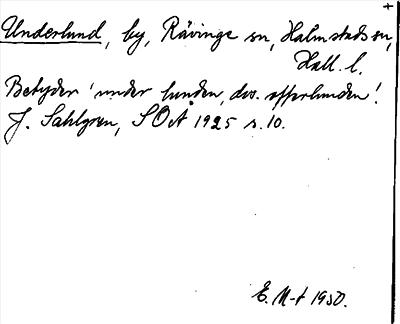 +
Underlund, by, Rävinge sn, Halmstads sn,
Hall. l.
Betyder 'under lunden, dvs. offerlunden'.
J. Sahlgren, SOÅ 1925 s. 10.
E. M-t 1950.